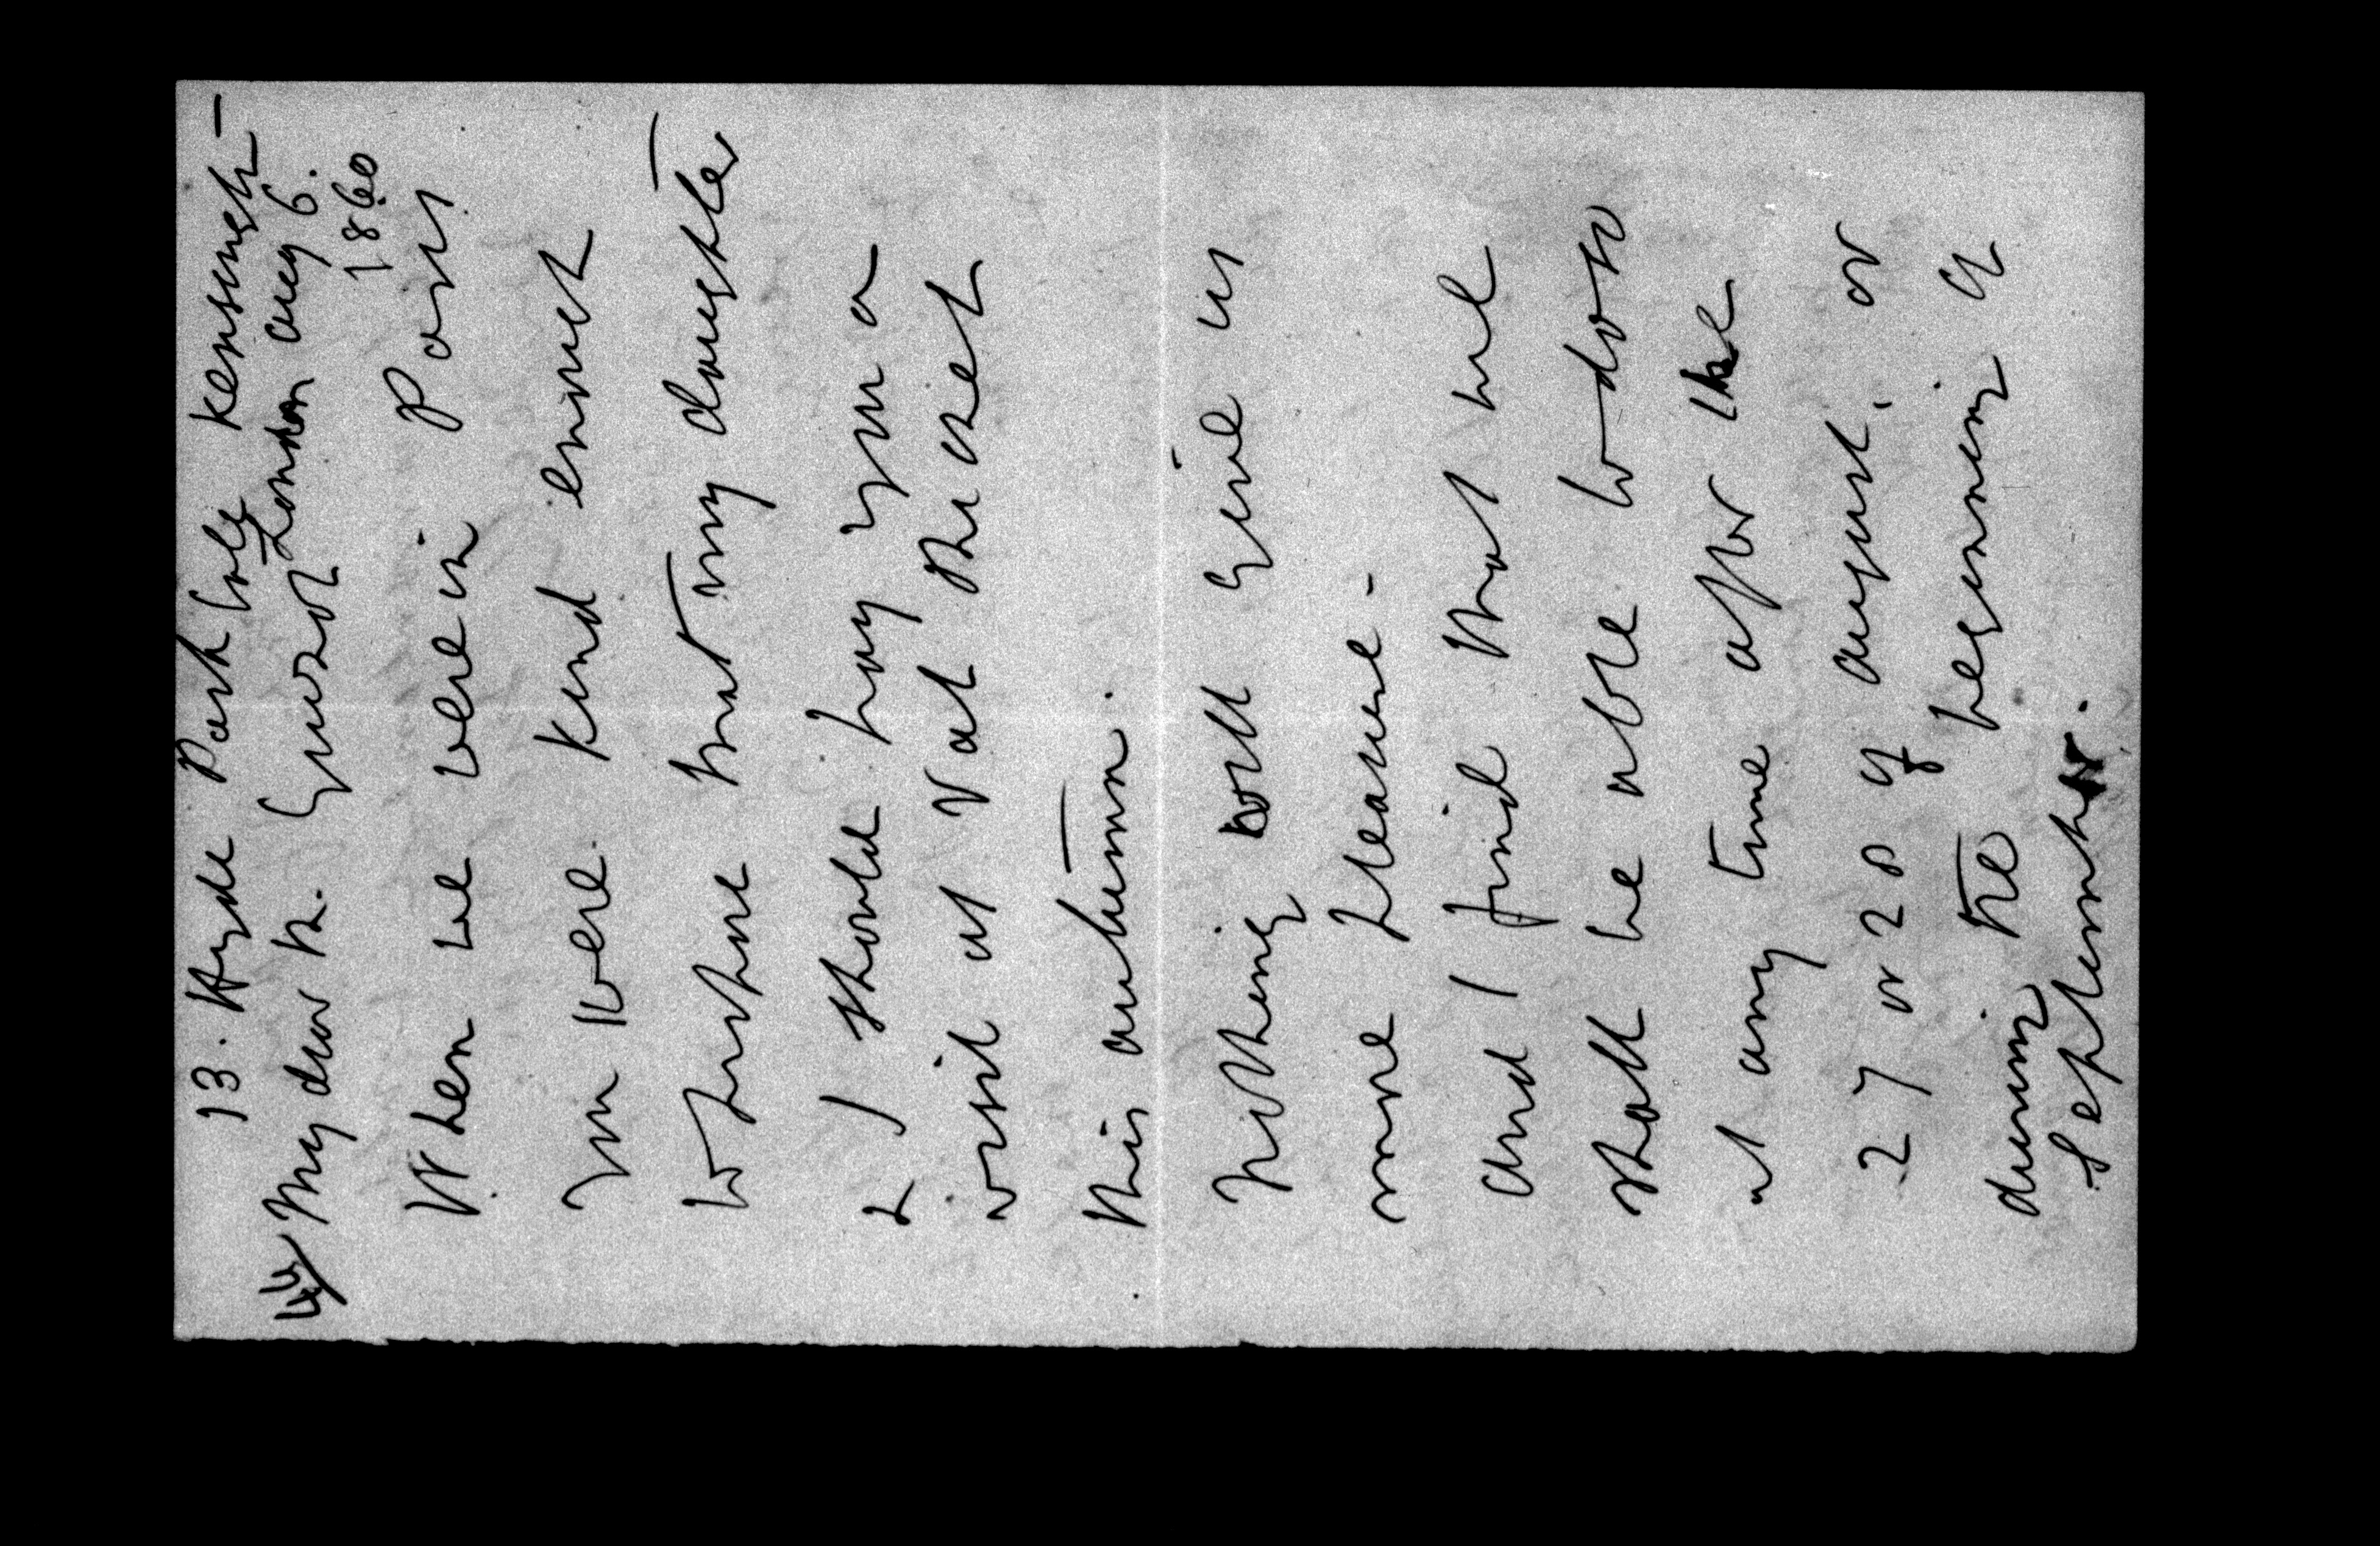 13. Hyde Park Gate Kensingt–
London Aug 6.
1860
My dear M. Guizot
When we were in Paris
you were kind enough
to propose that my daughter
& I should pay you a
visit at Val Richer
this autumn.
Nothing will give us
more pleasure–
and I find that we
shall be able to do so
at any time after the
27 or 28 of August, or
during the beginning of
September.